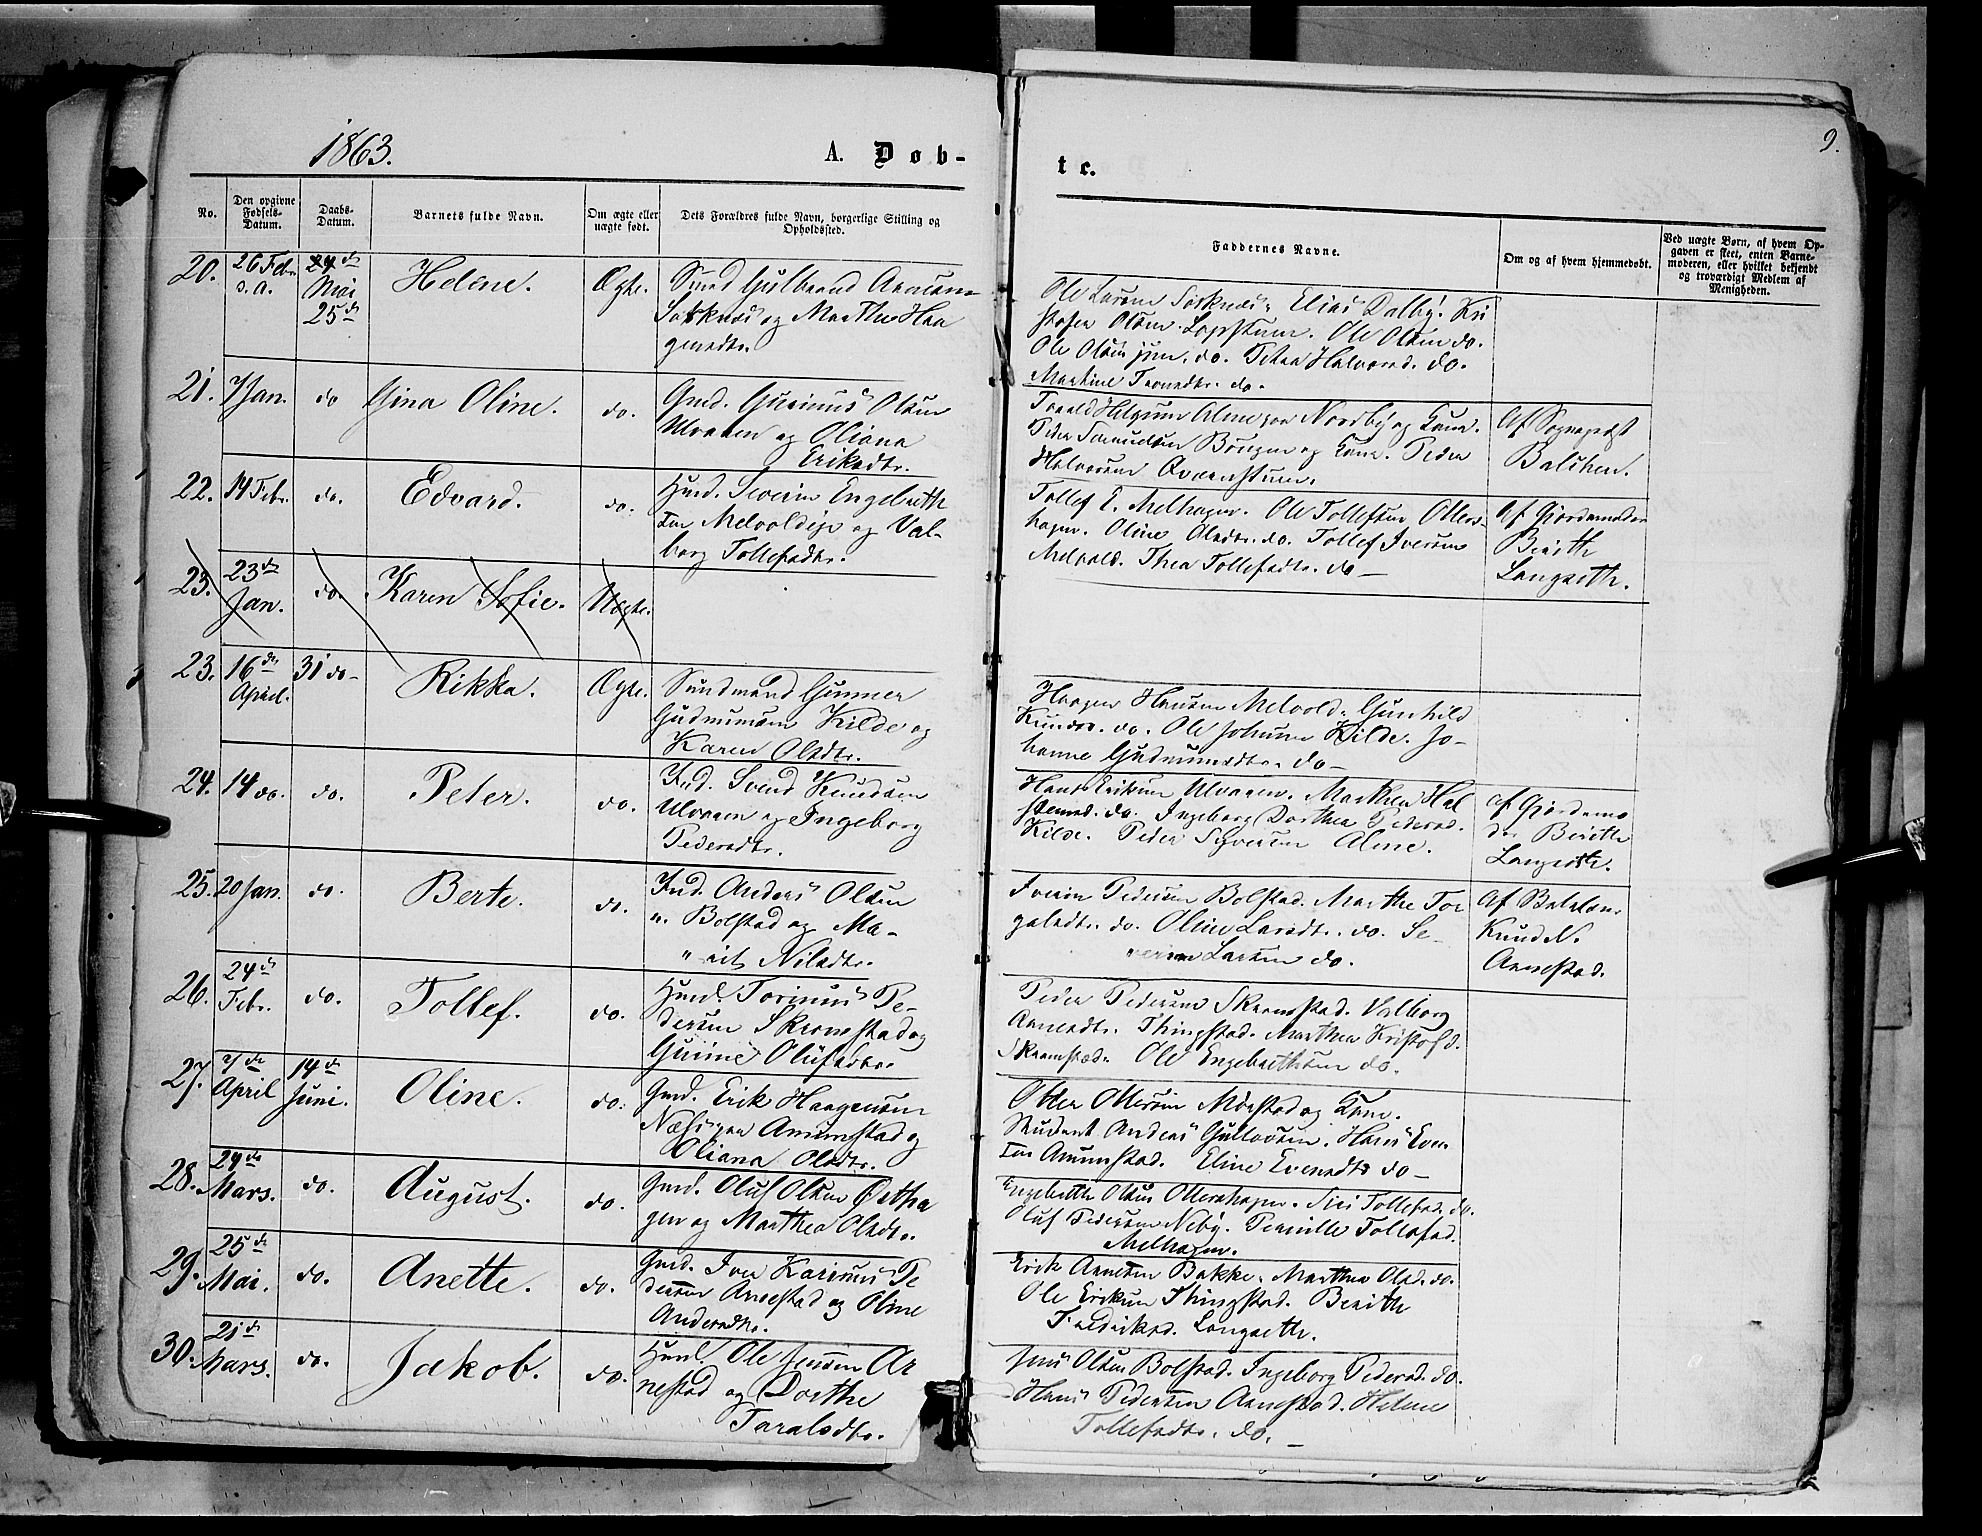 1863.
A. Døb-
te.
9.
No.
Den opgivne Fødsels-Datum.
Daabs-Datum.
Barnets fulde Navn.
Om ægte eller uægte født.
Dets Forældres fulde Navn, borgerlige Stilling og Opholdssted.
Faddernes Navne.
Om og af hvem hjemmedøbt.
Ved uægte Børn, af hvem Op-
gaven er skeet, enten Barne-
moderen, eller hvilket bekjendt
og troværdigt Medlem af
Menigheden.
20.
26 Febr.
s. a.
24de
Mai
25de
Helene.
Ægte.
Gulbrand
og Marthe Haa
gensdtr.
Ole Larsen Elias Dalby. Kri
stofer Olsen Ole Olsen do.
Ole Olsen jun. do. Halvorsd. do.
Martine do.
21.
7 Jan.
do
Gina Oline.
do.
Gmd. Gurinus Olsen
Ulvaaen og Oliana
Eriksdtr.
Nordby og Kone.
Peder og Kone. Peder
Halvorsen
Af Sognepræst
Balchen.
22.
14 Febr.
do.
Edvard.
do.
Husmd. Severin Engebreth
sen og Val-
borg Tollefsdtr.
Tollef E. Melhagen. Ole Tollefsen Otters-
hagen. Oline Olsdtr. do. Tollef Iversen
Melvold. Thea Tollefsdtr. do-
Af Gjordemoder
Berith
Langseth.
23.
23de
Jan.
do.
Karen Sofie.
Uægte.
23.
16de
April.
31 do-
Rikka.
Ægte.
Gunner
Gudmunsen Kilde og
Karen Olsdtr.
Haagen Hansen Melvold. Gunhild
do. Ole Johnsen Kilde. Jo-
hanne Gudmunsdtr. do-
24.
14 do.
do.
Peter.
do.
Ind. Svend Knudsen
Ulvaaen og Ingeborg
Pedersdtr.
Hans Eriksen Ulvaaen. Marthea Hal
do. Ingeborg Dorthea Pedersd.
Kilde. Peder Syversen Alme.
af Gjordemo
der Berith
Langseth.
25.
20 Jan.
do.
Berte.
do.
Ind. Anders Olsen
Bolstad og Ma-
rit Nilsdtr.
Iverin Pedersen Bolstad. Marthe Tor
galsdtr. do. Oline Larsdtr. do. Se-
verin Larsen do.
Af
Knud N.
Arnestad.
26.
24de
Febr.
do.
Tollef.
do.
Husmd. Torinus Pe-
dersen Skramstad og
Gurine Olufsdtr.
Peder Pedersen Skramstad. Valborg
Arnesdtr. Thingstad. Marthea Kristofd.
Skramstad. Ole Engebrethsen do.
27.
7de
April
14de
Juni.
Oline.
do.
Gmd. Erik Haagensen
Næss Amunstad og
Oliana Olsdtr.
Otter Ottersen Mørstad og Kone.
Student Andreas Gullovsen. Hans Even
sen Amunstad. Eline Evensdtr do-
28.
24de
Mars.
do.
August.
do.
Gmd. Oluf Olsen Østha
gen og Marthea Olsdtr.
Engebreth Olsen Ottershagen. Siri Tollefsd. do.
Oluf Pedersen Neby. Pernille Tollefsd.
Melhagen.
29.
25de
Mai.
do.
Anette.
do.
Gmd. Iver Karinus Pe
dersen Arnestad og Oline
Andersdtr.
Erik Arnesen Bakke. Marthea Olsd. do.
Ole Eriksen Thingstad. Berith
Fredriksd. Langseth.
30.
21de
Mars.
do.
Jakob.
do.
Husmd. Ole Jensen Ar
nestad og Dorthe
Taralsdtr.
Jens Olsen Bolstad. Ingeborg Pedersd. do.
Hans Pedersen Arnestad. Helene
Tollefsdtr. do.